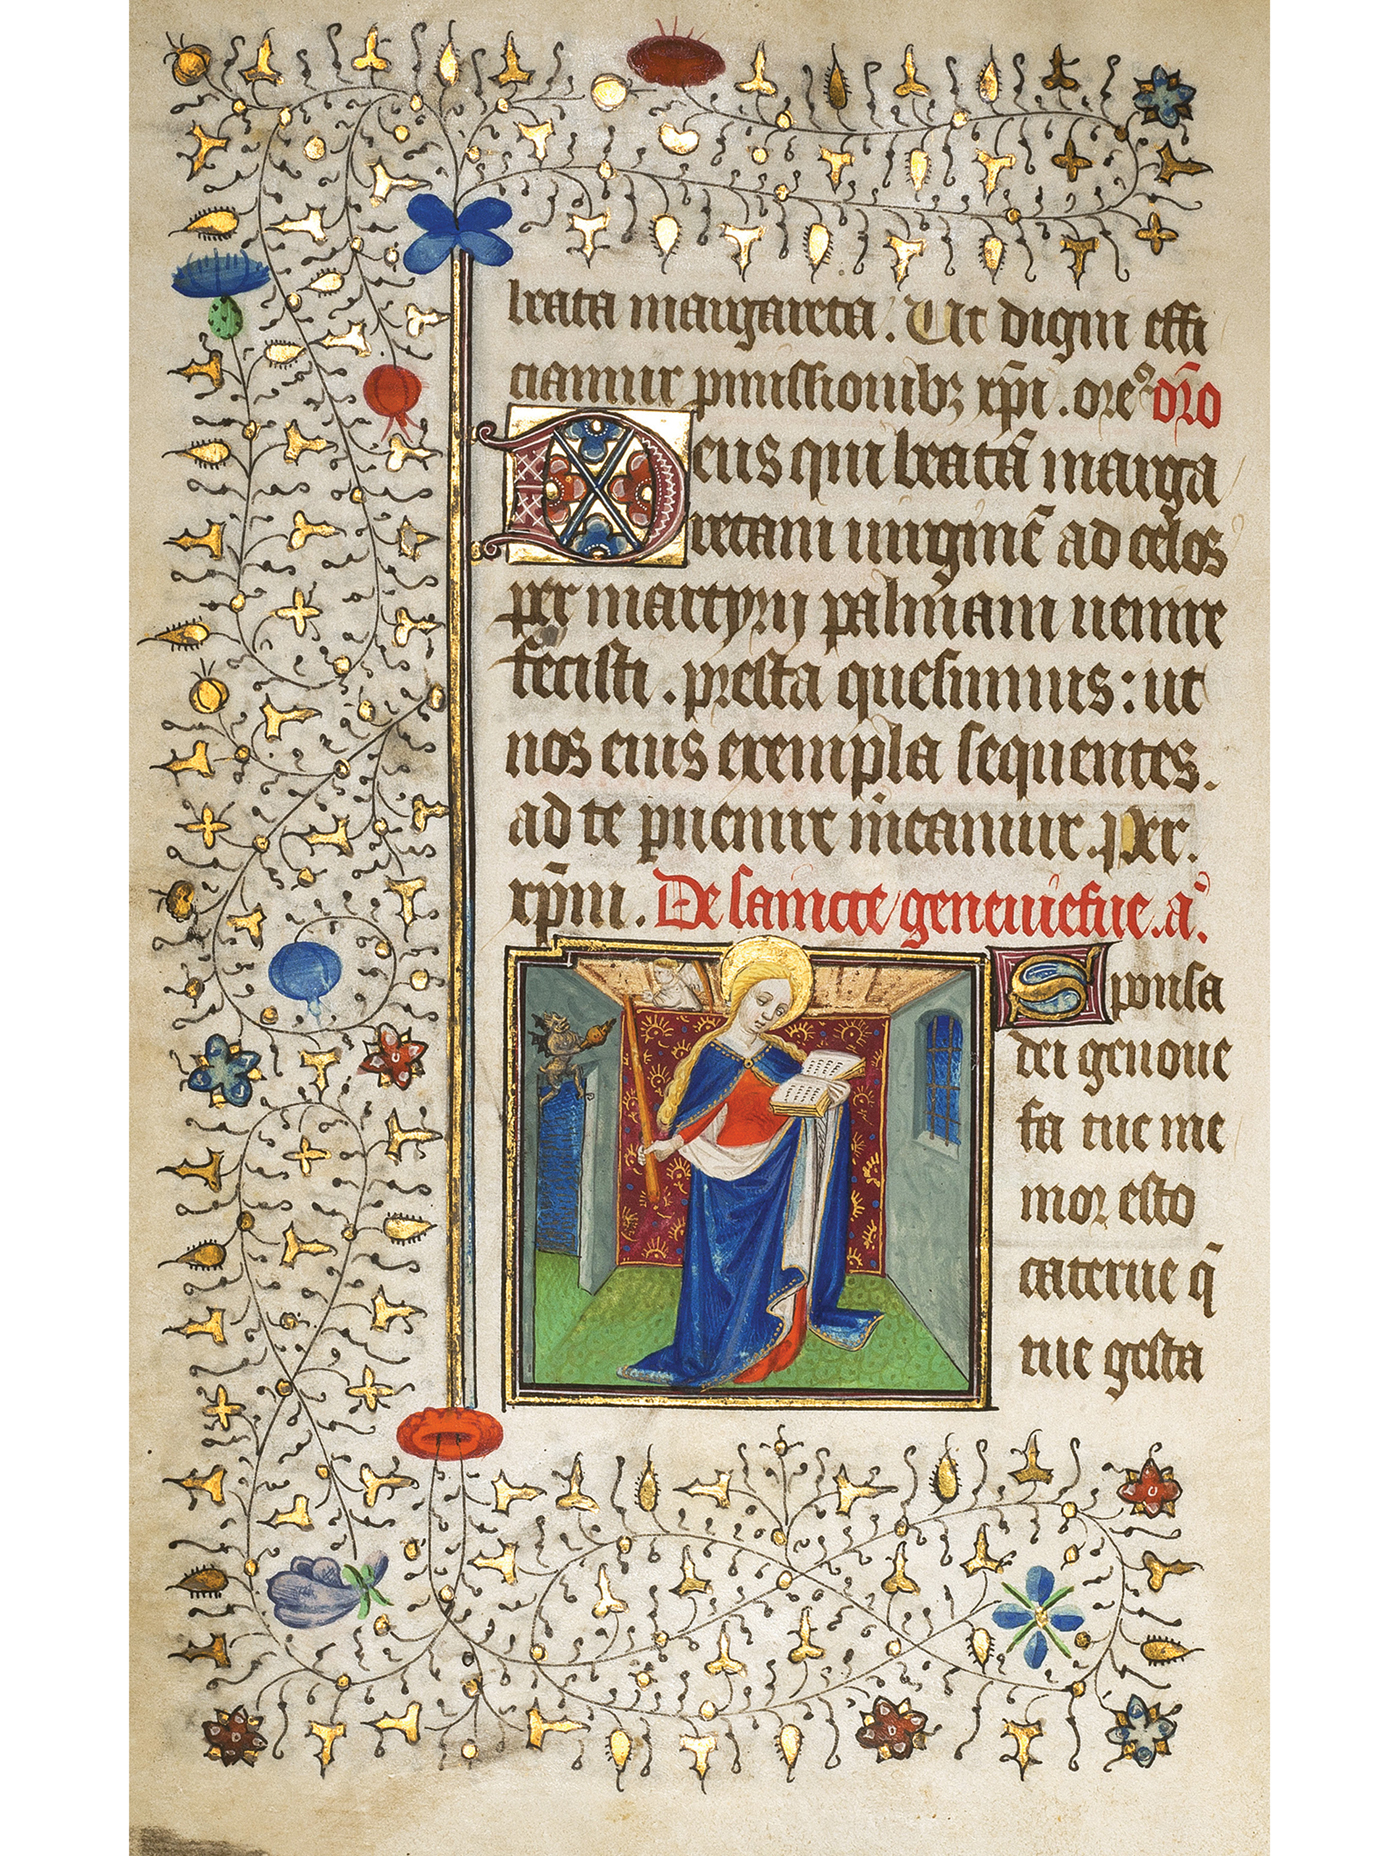 beata margareta. Ut digni effi
ciamur pmissionibꝫ xp̄i. orēꝰ or̄o
Deus qui beatā marga
retam uirginē ad celos
per martyrij palmam uenire
fecisti. presta quesumus: ut
nos eius exempla sequentes.
ad te puenire mēamur. per.
xp̄m. De saincte geneuiefue. aͣ.
Sponsa
dei genoue
fa tue me
mor esto
caterue q̄
tue gesta